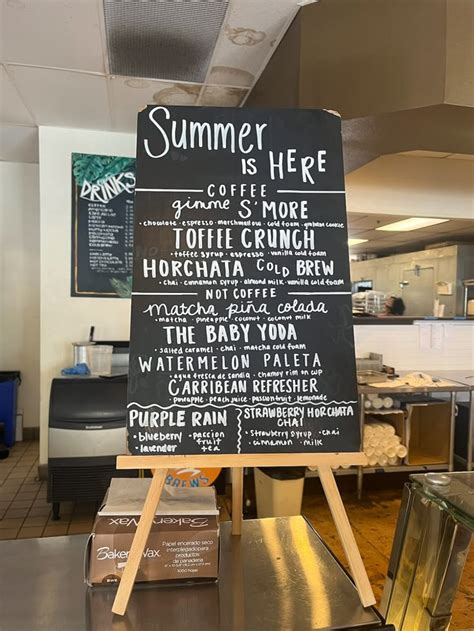 Summer
IS HERE
COFFEE
gimme S'MORE
• chocolate • espresso • marshmallow • cold foam • graham cookie
TOFFEE CRUNCH
• toffee syrup • espresso • vanilla cold foam
HORCHATA COLD BREW
• chai • cinnamon syrup • almond milk • vanilla cold foam
NOT COFFEE
matcha piña colada
• matcha • pineapple • coconut • coconut milk
THE BABY YODA
• salted caramel • chai • matcha cold foam
WATERMELON PALETA
• agua fresca de sandia • chamoy rim on cup
CARRIBEAN REFRESHER
• pineapple • peach juice • passionfruit • lemonade
PURPLE RAIN
• blueberry • passion
• lavender fruit
tea
STRAWBERRY HORCHATA
CHAI
• strawberry syrup • chai
• cinnamon • milk
DRINKS
BREWS
BAKERY WAX
Papel encerado seco
interplegado para
productos
de panadería
Bakery Wax